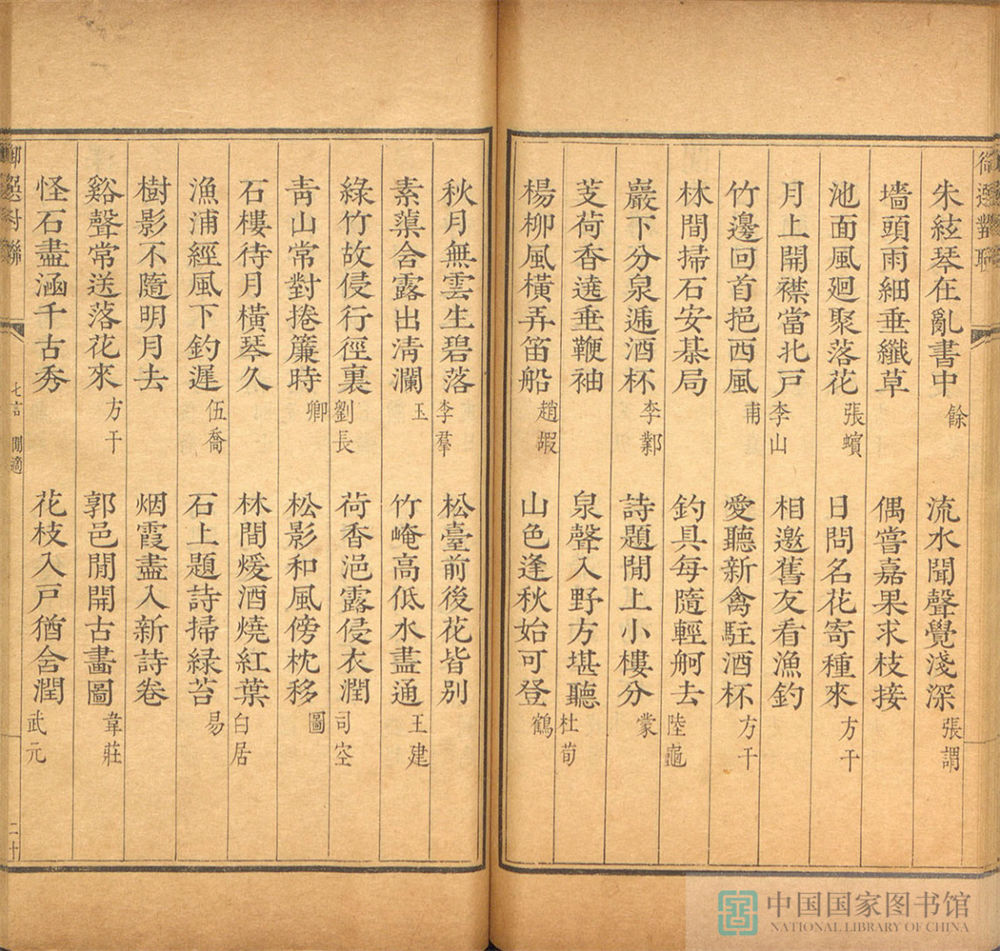 朱絃琴在亂書中 餘 流水聞聲覺淺深 張謂
墻頭雨細垂纖草 偶嘗嘉果求枝接
池面風廻聚落花 張蠙 日問名花寄種來 方干
月上開襟當北戶 李山 相邀舊友看漁釣
竹邊回首挹西風 甫 愛聽新禽駐酒杯 方干
林間掃石安棊局 釣具每隨輕舸去 陸龜
巖下分泉遞酒杯 李鄴 詩題閒上小樓分 蒙
芰荷香遶垂鞭袖 泉聲入野方堪聽 杜荀
楊柳風橫弄笛船 趙嘏 山色逢秋始可登 鶴
秋月無雲生碧落 李羣 松臺前後花皆別
素蕖含露出淸瀾 玉 竹崦高低水盡通 王建
綠竹故侵行徑裏 劉長 荷香浥露侵衣潤 司空
靑山常對捲簾時 卿 松影和風傍枕移 圖
石樓待月橫琴久 林間煖酒燒紅葉 白居
漁浦經風下釣遲 伍喬 石上題詩掃緑苔 易
樹影不隨明月去 烟霞盡入新詩卷
谿聲常送落花來 方干 郭邑閒開古畵圖 韋莊
怪石盡涵千古秀 花枝入戸猶含潤 武元
七言 閒適 二十
中国国家图书馆
NATIONAL LIBRARY OF CHINA